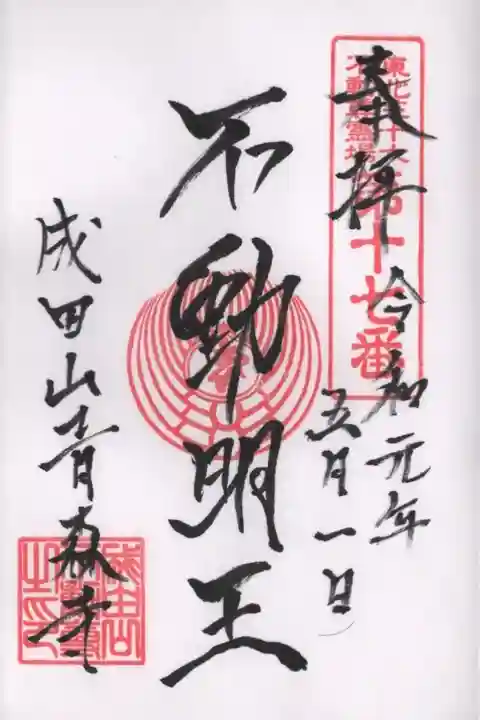 奉拝
令和元年
五月一日
東北三十六
不動尊霊場
第十七番
不動明王
成田山青森寺